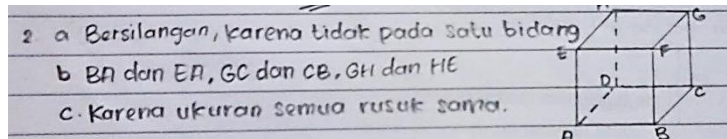 2 a Bersilangan, karena tidak pada satu bidang
b BA dan EA, GC dan CB, GH dan HE
c. Karena ukuran semua rusuk sama.
H G
E F
D C
A B